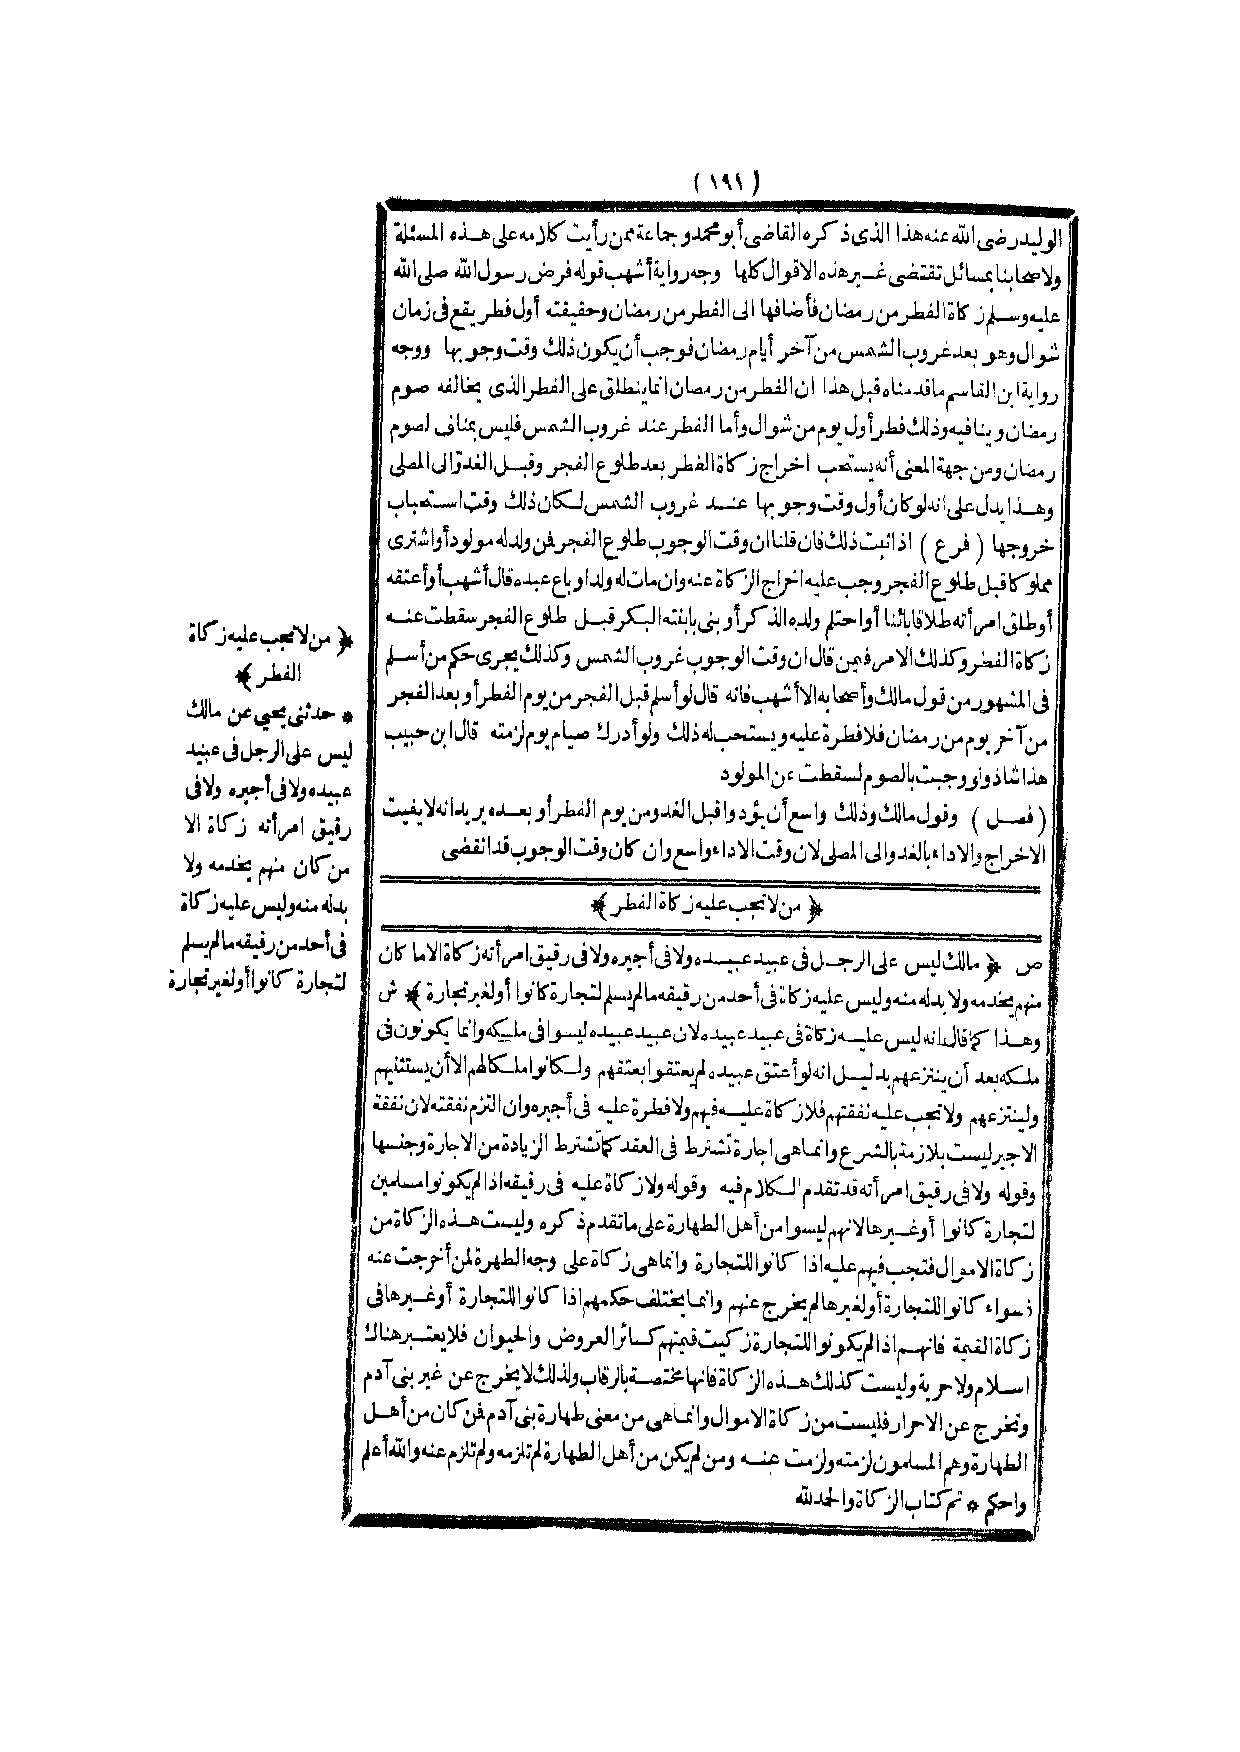 (١٩١)
الوليد رضى الله عنه هذا الذى ذكره القاضى أبو محمد وجماعة ممن رأيت كلامه على هذه المسئلة
ولاصحابنا بمسائل تقتضى غير هذه الاقوال كلها وجه رواية أشهب قوله فرض رسول الله صلى الله
عليه وسلم زكاة الفطر من رمضان فأضافها الى الفطر من رمضان وحقيقته أول فطر يقع فى زمان
شوال وهو بعد غروب الشمس من آخر أيام رمضان فوجب أن يكون ذلك وقت وجوبها ووجه
رواية ابن القاسم ماقدمناه قبل هذا ان الفطر من رمضان انما ينطلق على الفطر الذى يخالفه صوم
رمضان وينافيه وذلك فطر أول يوم من شوال وأما الفطر عند غروب الشمس فليس بمناف لصوم
رمضان ومن جهة المعنى أنه يستحب اخراج زكاة الفطر بعد طلوع الفجر وقبل الغدو الى المصلى
وهذا يدل على انه لو كان أول وقت وجوبها عند غروب الشمس لكان ذلك وقت استحباب
خروجها ( فرع ) اذا ثبت ذلك فان قلنا ان وقت الوجوب طلوع الفجر فمن ولد له مولود أو اشترى
مملوكا قبل طلوع الفجر وجب عليه اخراج الزكاة عنه وان مات له ولد او باع عبده قال أشهب أو أعتقه
أو طلق امرأته طلاقا بائنا أو احتلم ولده الذكر أو بنى بابنته البكر قبل طلوع الفجر سقطت عنه
زكاة الفطر وكذلك الامر فيمن قال ان وقت الوجوب غروب الشمس وكذلك يجرى حكم من أسلم
فى المشهور من قول مالك وأصحابه الا أشهب فانه قال لو أسلم قبل الفجر من يوم الفطر أو بعد الفجر
من آخر يوم من رمضان فلا فطرة عليه ويستحب له ذلك ولو أدرك صيام يوم لزمته قال ابن حبيب
هذا شاذ ولو وجبت بالصوم لسقطت عن المولود
( فصل ) وقول مالك وذلك واسع أن يؤدوا قبل الغدو من يوم الفطر أو بعده يريد انه لا يفيت
الاخراج والاداء بالغدو الى المصلى لان وقت الاداء واسع وان كان وقت الوجوب قد انقضى
﴿ من لا تجب عليه زكاة الفطر ﴾
ص ﴿ مالك ليس على الرجل فى عبيد عبيده ولا فى أجيره ولا فى رقيق امرأته زكاة الا ما كان
منهم يخدمه ولا بد له منه وليس عليه زكاة فى أحد من رقيقه ما لم يسلم لتجارة كانوا أو لغير تجارة ﴾ ش
وهذا كما قال انه ليس عليه زكاة فى عبيد عبيده لان عبيد عبيده ليسوا فى ملكه وانما يكونون فى
ملكه بعد أن ينتزعهم بدليل انه لو أعتق عبيده لم يعتقوا بعتقهم ولكانوا ملكا لهم الا أن يستثنيهم
ولينتزعهم ولا تجب عليه نفقتهم فلا زكاة عليه فيهم ولا فطرة عليه فى أجيره وان التزم نفقته لان نفقة
الاجير ليست بلازمة بالشرع وانما هى اجارة تشترط فى العقد كما تشترط الزيادة من الاجارة وجنسها
وقوله ولا فى رقيق امرأته قد تقدم الكلام فيه وقوله ولا زكاة عليه فى رقيقه اذا لم يكونوا مسلمين
لتجارة كانوا أو غيرها لانهم ليسوا من أهل الطهارة على ما تقدم ذكره وليست هذه الزكاة من
زكاة الاموال فتجب فيهم عليه اذا كانوا للتجارة وانما هى زكاة على وجه الطهرة لمن أخرجت عنه
فسواء كانوا للتجارة أو لغيرها لم يخرج عنهم وانما يختلف حكمهم اذا كانوا للتجارة أو غيرها فى
زكاة القيمة فانهم اذا لم يكونوا للتجارة زكيت قيمتهم كسائر العروض والحيوان فلا يعتبر هناك
اسلام ولا حرية وليست كذلك هذه الزكاة فانها مختصة بالرقاب ولذلك لا يخرج عن غير بنى آدم
وتخرج عن الاحرار فليست من زكاة الاموال وانما هى من معنى طهارة بنى آدم فمن كان من أهل
الطهارة وهم المسلمون لزمته ولزمت عنه ومن لم يكن من أهل الطهارة لم تلزمه ولم تلزم عنه والله أعلم
واحكم * تم كتاب الزكاة والحمد لله
﴿ من لا تجب عليه زكاة
الفطر ﴾
* حدثنى يحيى عن مالك
ليس على الرجل فى عبيد
عبيده ولا فى أجيره ولا فى
رقيق امرأته زكاة الا
من كان منهم يخدمه ولا
بد له منه وليس عليه زكاة
فى أحد من رقيقه ما لم يسلم
لتجارة كانوا أو لغير تجارة